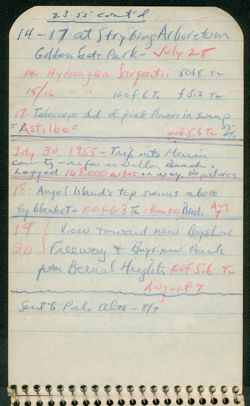 23 ss cont'd
14-17 at Strybing Arboretum
Golden Gate Park - July 28
14- Hydrangea Sargentii 50f8 TL
15/16 " " 100f6 TL f 5.2 TL
17- Telescope shot of pink flowers in swamp
"Astilbe" 100f5.6 TL
July 30, 1955 - Trip into Marin
county - as far as Bolinas.
Logged 168,000 miles on way. No pictures
18 - Angel Island's top swims above
fog blanket - 100f6.3 TL - Blvd. Aug 7
19 } View toward new Bayshore
20 Freeway & Bayview Park
from Bernal Heights 100f5.6 TL
August 7
Sent to Palo Alto - 8/7